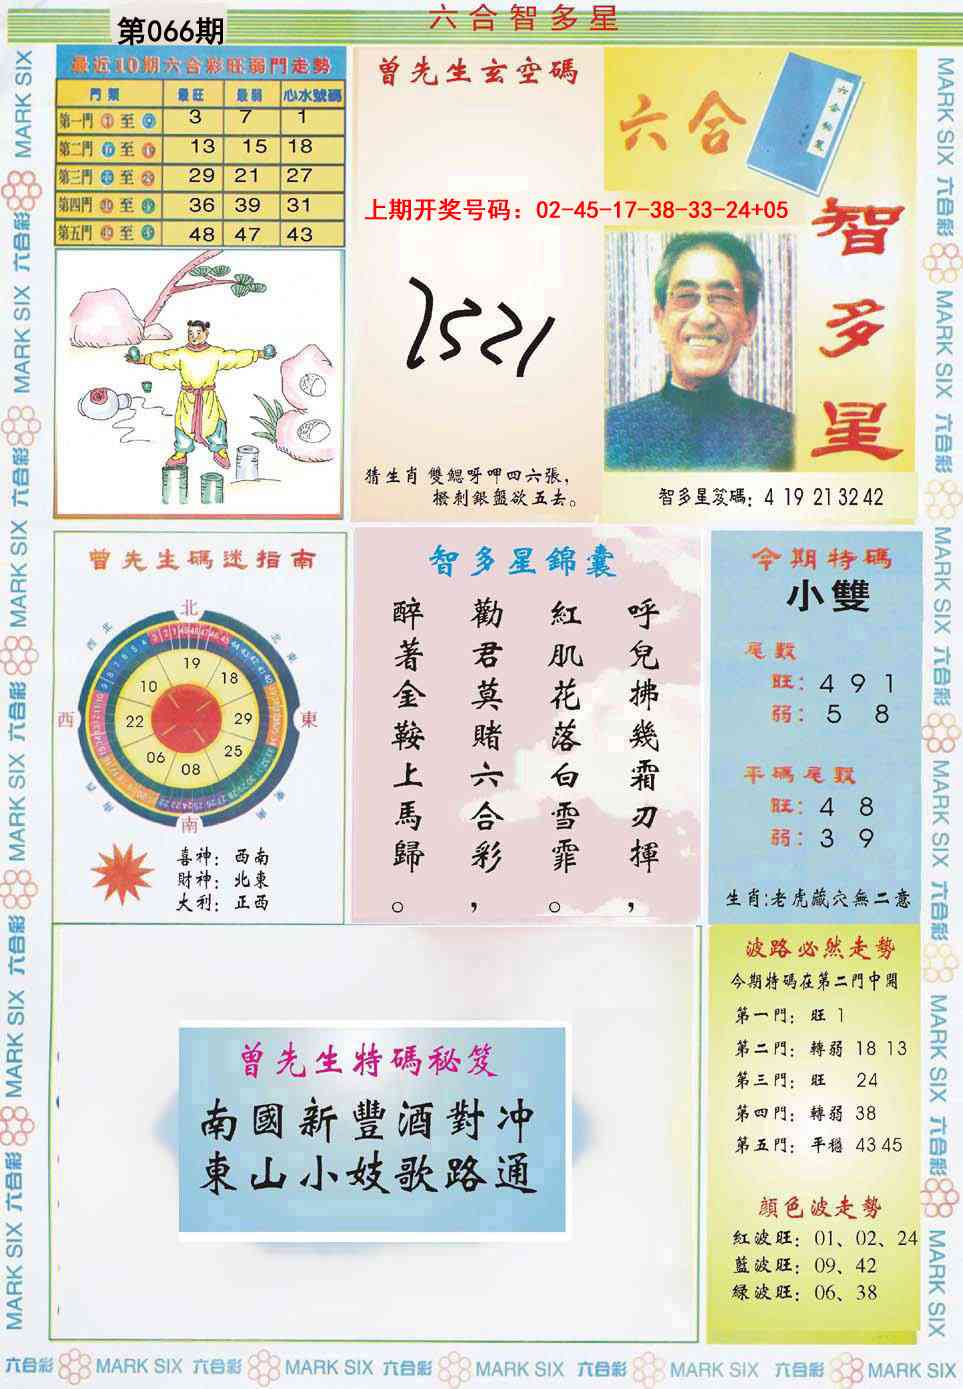 第066期
六合智多星
最近10期六合彩旺弱門走勢
門類 最旺 最弱 心水號碼
第一門 至 3 7 1
第二門 至 13 15 18
第三門 至 29 21 27
第四門 至 36 39 31
第五門 至 48 47 43
曾先生玄空碼
六合
智多星
上期开奖号码：02-45-17-38-33-24+05
猜生肖 雙鰓呀呷四六張，
撥刺銀盤欲五去。
智多星笈碼：4 19 21 32 42
曾先生碼迷指南
北
東
南
西
19
18
29
25
08
06
22
10
喜神：西南
財神：北東
大利：正西
智多星錦囊
呼兒拂幾霜刃揮，
紅肌花落白雪霏。
勸君莫賭六合彩，
醉著金鞍上馬歸。
今期特碼
小雙
尾數
旺：4 9 1
弱：5 8
平碼尾數
旺：4 8
弱：3 9
生肖:老虎藏穴無二意
曾先生特碼秘笈
南國新豐酒對冲
東山小妓歌路通
波路必然走勢
今期特碼在第二門中開
第一門：旺 1
第二門：轉弱 18 13
第三門：旺 24
第四門：轉弱 38
第五門：平穩 43 45
顏色波走勢
紅波旺：01、02、24
藍波旺：09、42
綠波旺：06、38
六合彩 MARK SIX 六合彩 MARK SIX 六合彩 MARK SIX 六合彩 MARK SIX 六合彩 MARK SIX